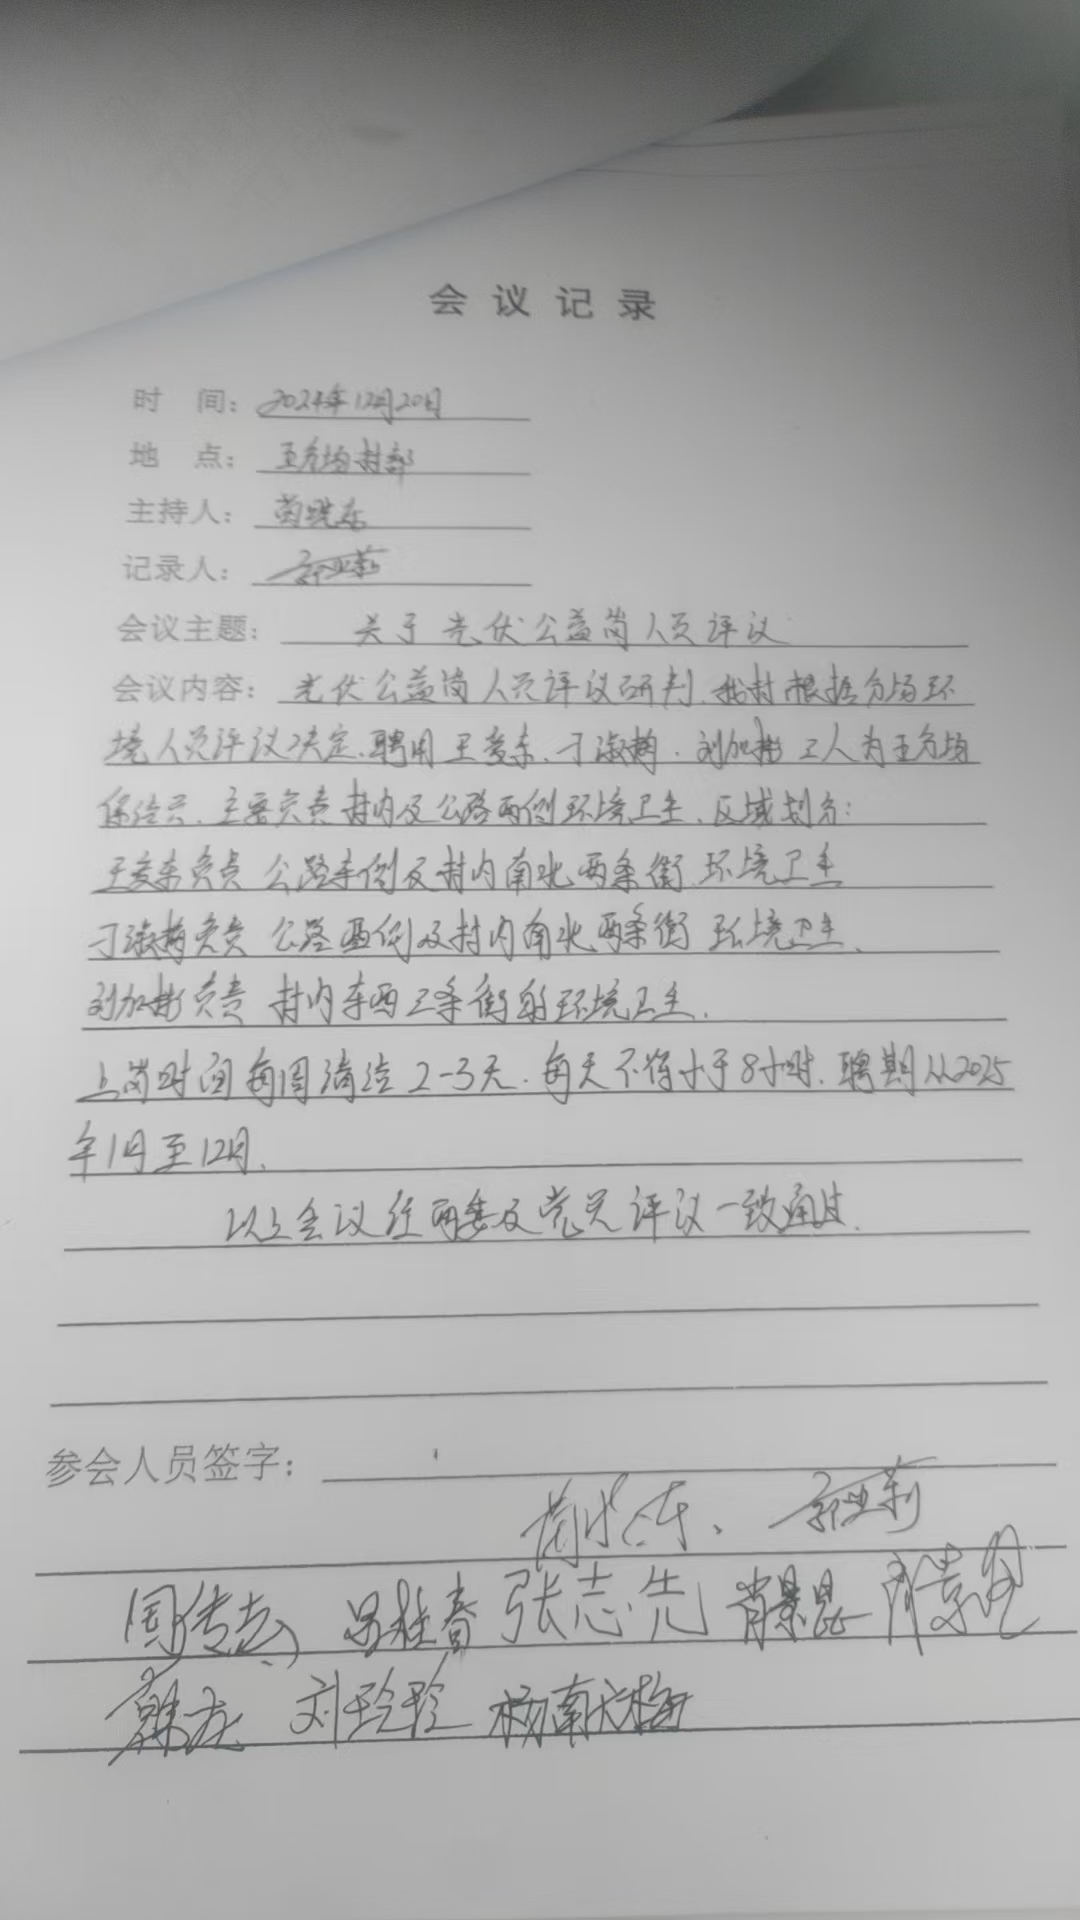 会议记录
时 间：2024年12月20日
地 点：五分场村部
主持人：
记录人：郭亚莉
会议主题：关于光伏公益岗人员评议
会议内容：光伏公益岗人员评议研判、我村根据分场环
境人员评议决定、聘用王爱东、丁淑梅、刘加彬 三人为五分场
保洁员、主要负责村内及公路两侧环境卫生、区域划分：
王爱东负责 公路东侧及村内南北两条街 环境卫生
丁淑梅负责 公路西侧及村内南北两条街 环境卫生、
刘加彬负责 村内东西三条街的环境卫生、
上岗时间每周清洁2-3天、每天不得小于8小时、聘期从2025
年1月至12月、
以上会议经两委及党员评议一致通过、
参会人员签字：
郭亚莉
张志先 肖景昆
韩龙 刘玲玲 杨南